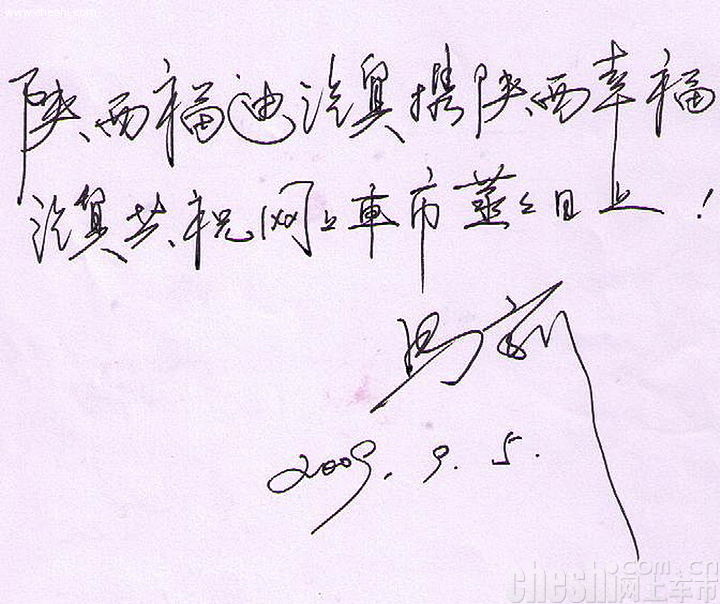 陕西福迪汽贸携陕西幸福
汽贸共祝网上車市蒸々日上！
马
2009.9.5.
cheshi.com.cn
网上车市